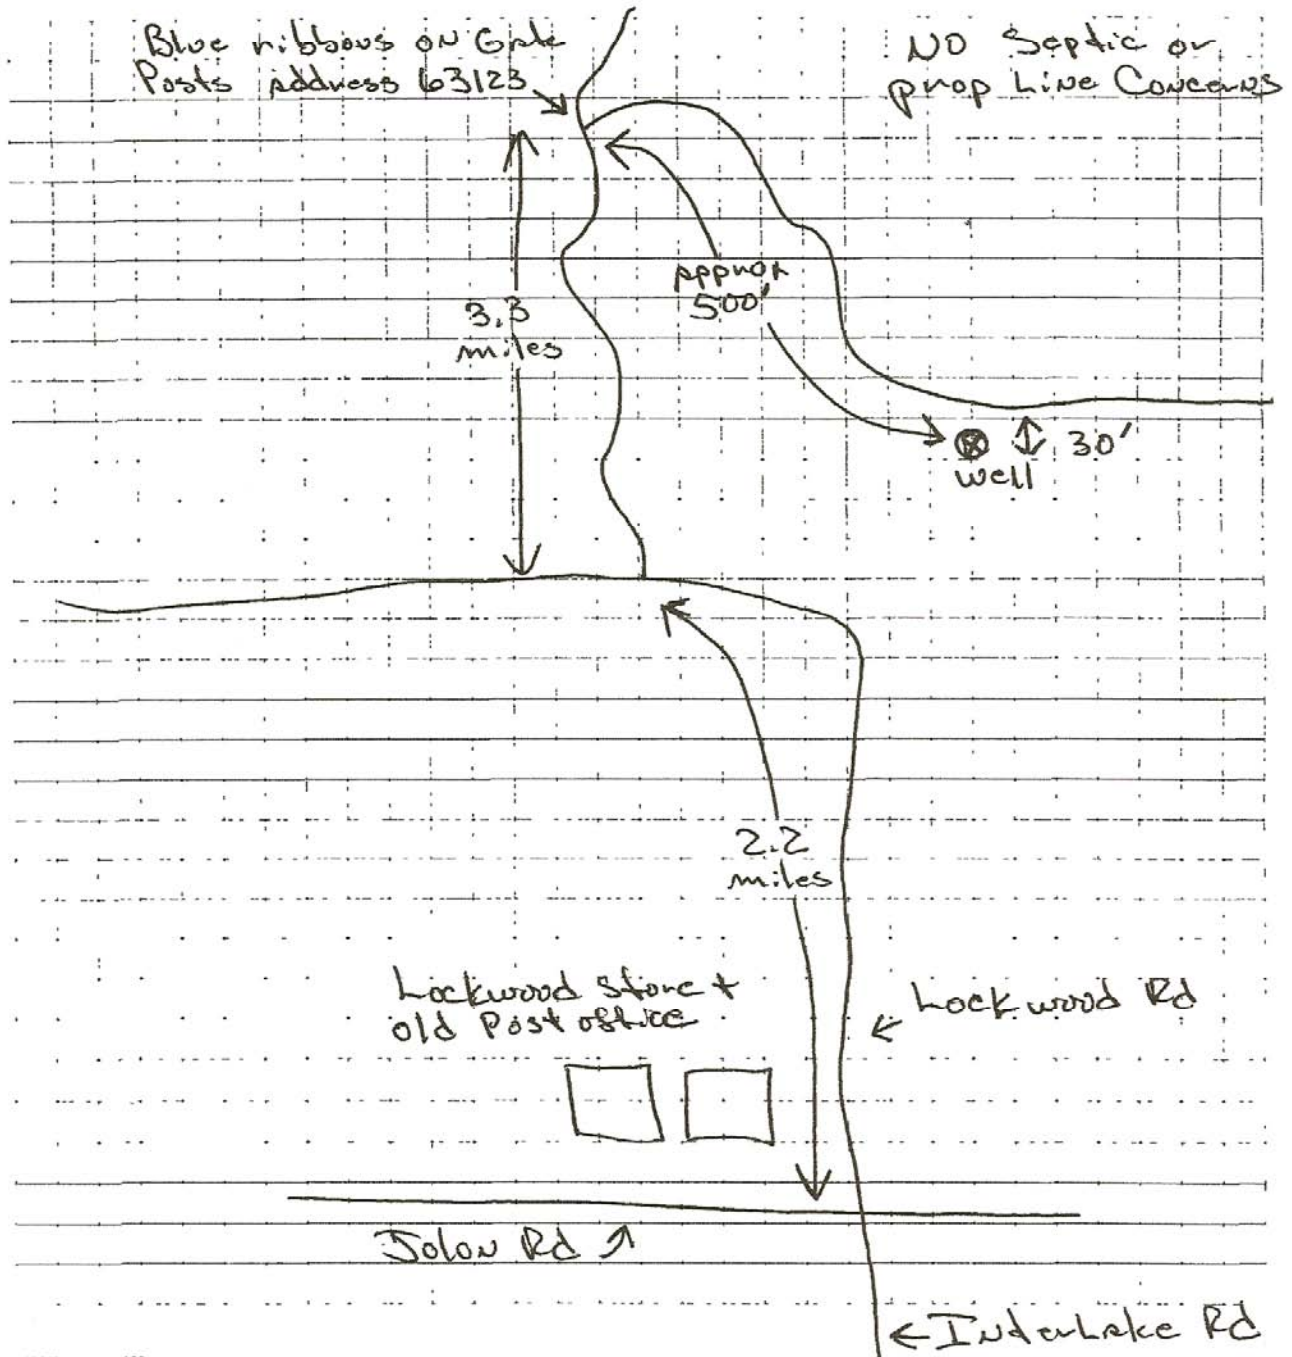 Blue ribbons on Gate
Posts address 63123
No Septic or
prop Line Concerns
approx
500'
3.3
miles
30'
well
2.2
miles
Lockwood Store +
old Post office
Lockwood Rd
Jolon Rd
InterLake Rd